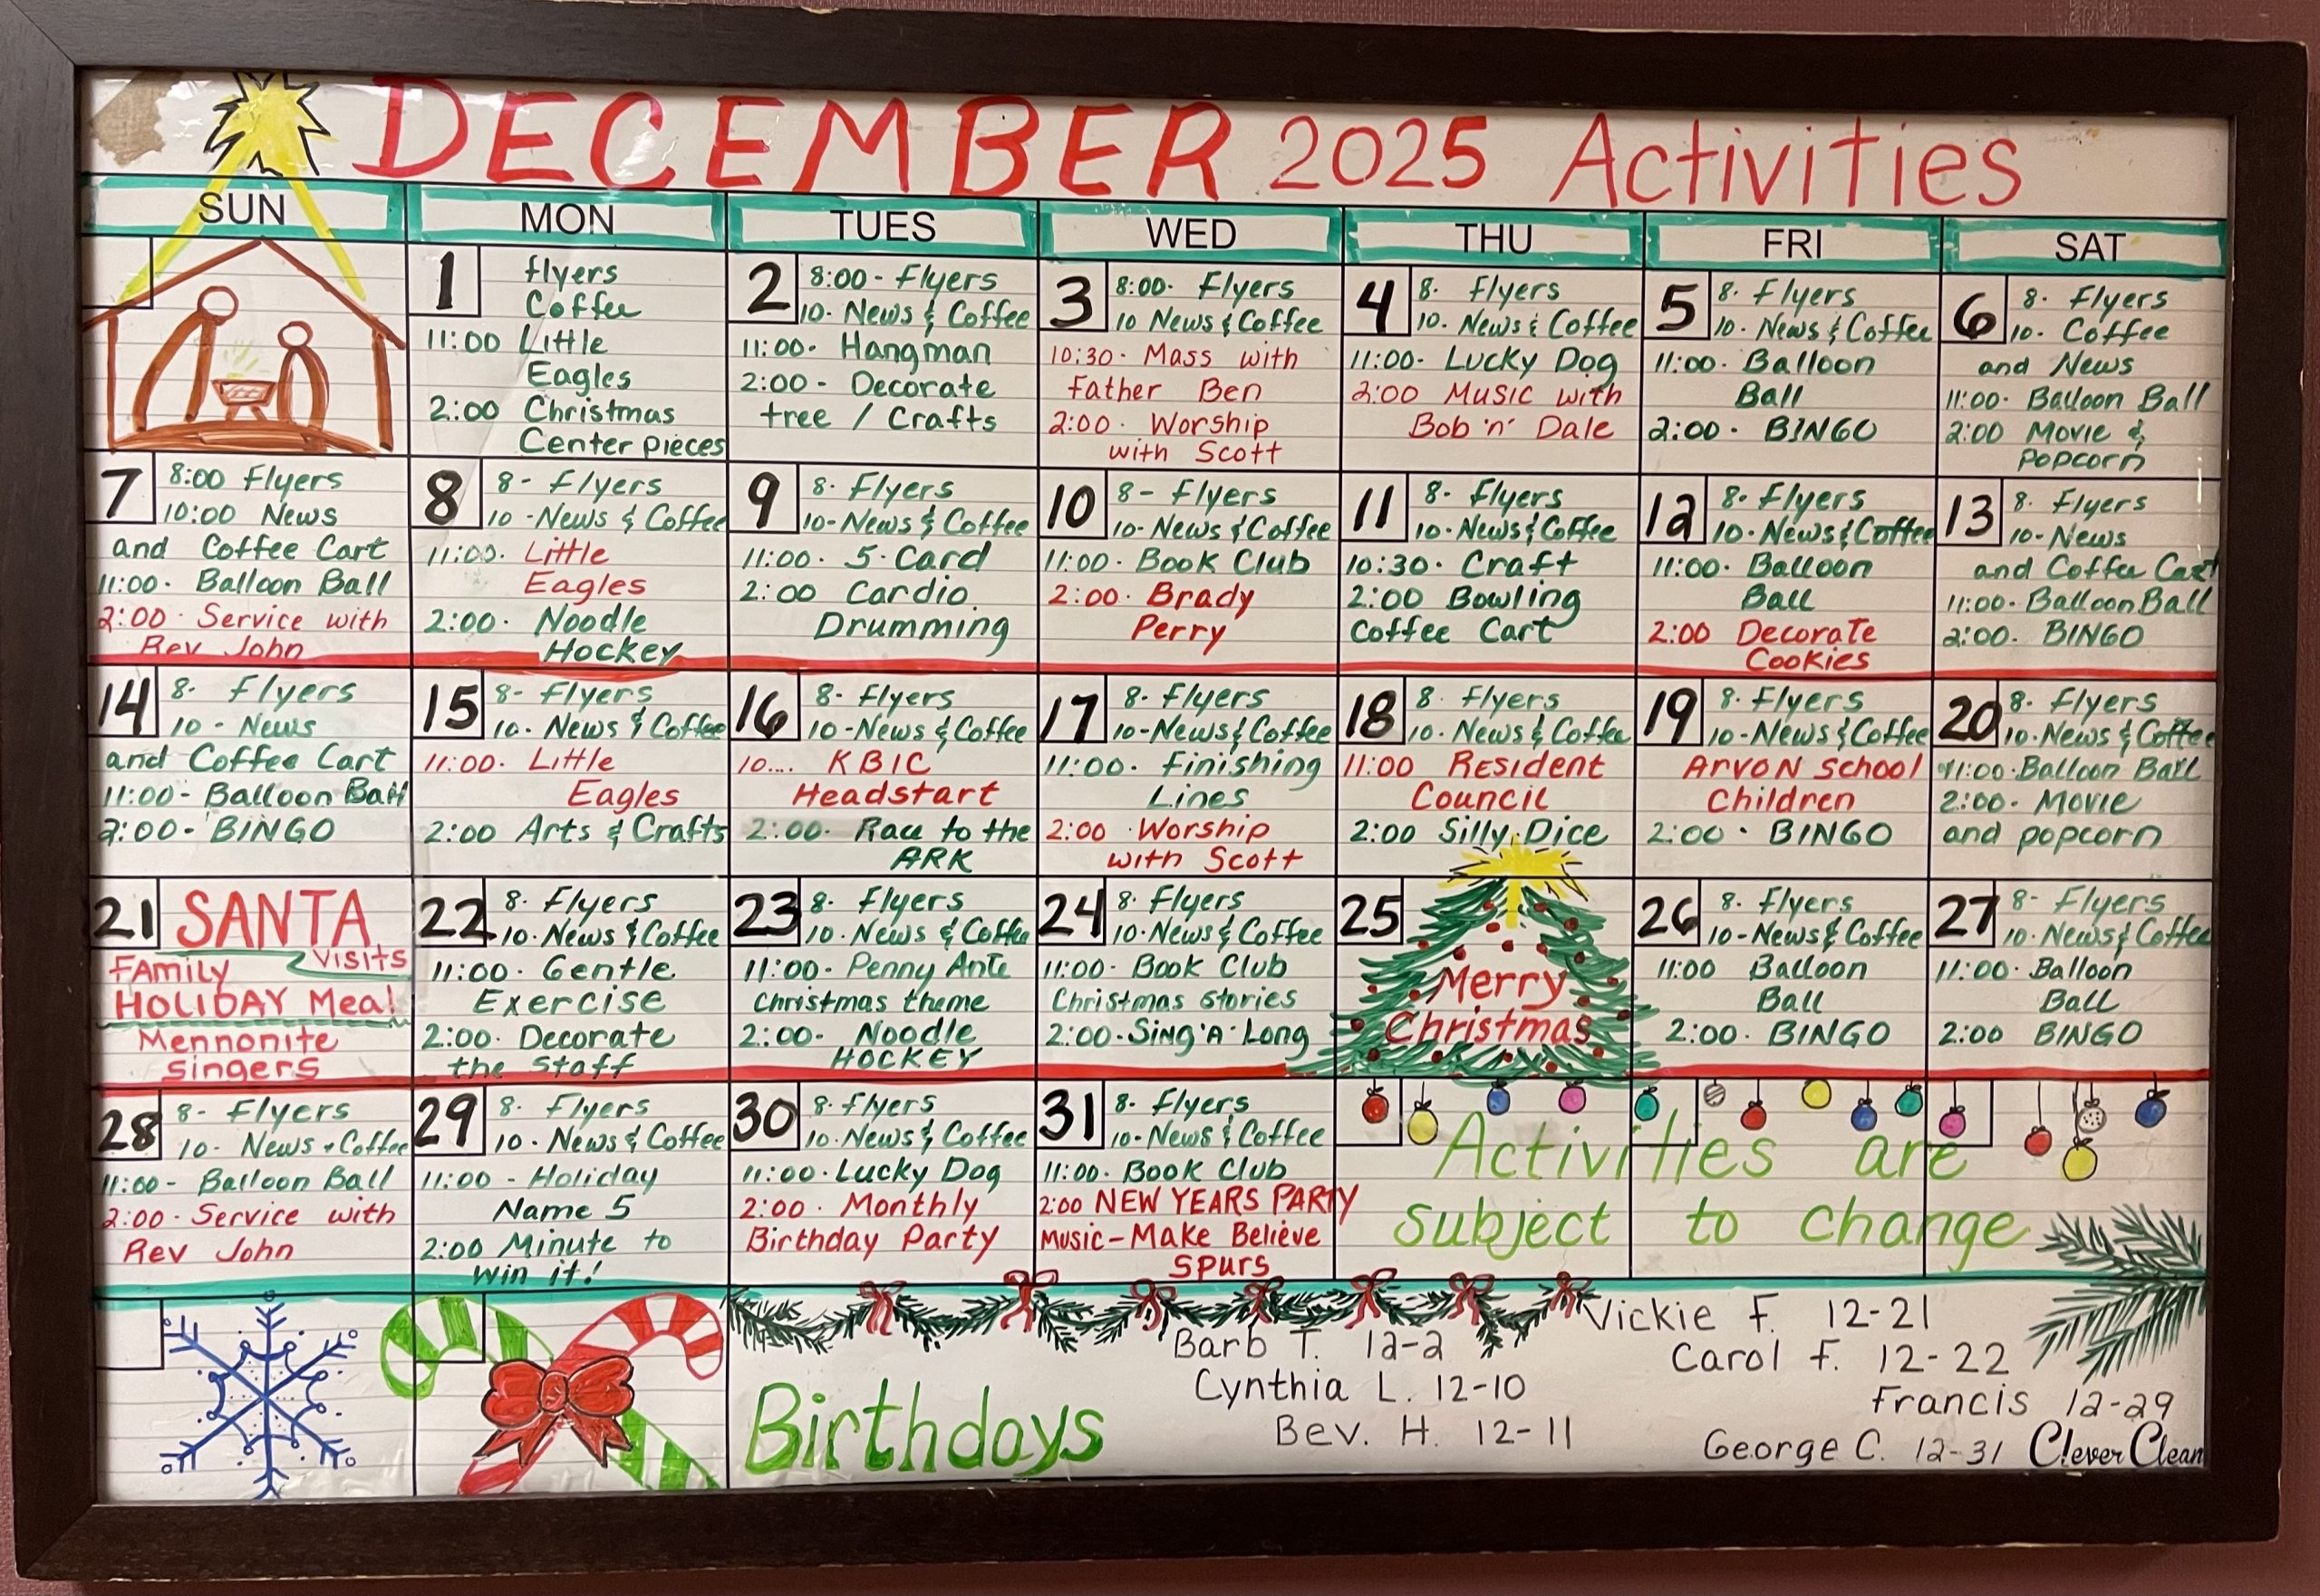 DECEMBER 2025 Activities
SUN MON TUES WED THU FRI SAT
1 flyers
Coffee
11:00 Little
Eagles
2:00 Christmas
Center pieces
2 8:00 - Flyers
10. News & Coffee
11:00. Hangman
2:00 - Decorate
tree / Crafts
3 8:00. Flyers
10 News & Coffee
10:30. Mass with
Father Ben
2:00. Worship
with Scott
4 8. Flyers
10. News & Coffee
11:00. Lucky Dog
2:00 Music with
Bob 'n' Dale
5 8. Flyers
10. News & Coffee
11:00. Balloon
Ball
2:00. BINGO
6 8. Flyers
10. Coffee
and News
11:00. Balloon Ball
2:00 Movie &
Popcorn
7 8:00 Flyers
10:00 News
and Coffee Cart
11:00. Balloon Ball
2:00. Service with
Rev John
8 8- Flyers
10 -News & Coffee
11:00. Little
Eagles
2:00. Noodle
Hockey
9 8. Flyers
10- News & Coffee
11:00. 5. Card
2:00 Cardio
Drumming
10 8- Flyers
10- News & Coffee
11:00. Book Club
2:00. Brady
Perry
11 8. Flyers
10. News & Coffee
10:30. Craft
2:00 Bowling
Coffee Cart
12 8. Flyers
10. News & Coffee
11:00. Balloon
Ball
2:00 Decorate
Cookies
13 8. Flyers
10- News
and Coffee Cart
11:00. Balloon Ball
2:00. BINGO
14 8. Flyers
10 - News
and Coffee Cart
11:00- Balloon Ball
2:00- BINGO
15 8- Flyers
10. News & Coffee
11:00. Little
Eagles
2:00 Arts & Crafts
16 8- Flyers
10-News & Coffee
10.... KBIC
Headstart
2:00. Race to the
ARK
17 8- Flyers
10-News & Coffee
11:00. Finishing
Lines
2:00 . Worship
with Scott
18 8. Flyers
10. News & Coffee
11:00 Resident
Council
2:00 Silly Dice
19 8. Flyers
10-News & Coffee
ARVON School
Children
2:00 . BINGO
20 8. Flyers
10. News & Coffee
11:00. Balloon Ball
2:00. Movie
and popcorn
21 SANTA
VISITS
FAMILY
HOLIDAY Meal
Mennonite
Singers
22 8. Flyers
10. News & Coffee
11:00. Gentle
Exercise
2:00. Decorate
the Staff
23 8. Flyers
10. News & Coffee
11:00- Penny Ante
Christmas theme
2:00- Noodle
HOCKEY
24 8. Flyers
10. News & Coffee
11:00. Book Club
Christmas stories
2:00. Sing 'A' Long
25 Merry
Christmas
26 8. Flyers
10-News & Coffee
11:00 Balloon
Ball
2:00. BINGO
27 8- Flyers
10. News & Coffee
11:00. Balloon
Ball
2:00 BINGO
28 8- Flyers
10- News + Coffee
11:00- Balloon Ball
2:00. Service with
Rev John
29 8. Flyers
10. News & Coffee
11:00 - Holiday
Name 5
2:00 Minute to
win it!
30 8. Flyers
10. News & Coffee
11:00. Lucky Dog
2:00. Monthly
Birthday Party
31 8. Flyers
10- News & Coffee
11:00. Book Club
2:00 NEW YEARS PARTY
Music - Make Believe
Spurs
Activities are
subject to change
Birthdays
Barb T. 12-2
Cynthia L. 12-10
Bev. H. 12-11
Vickie F. 12-21
Carol F. 12-22
Francis 12-29
George C. 12-31
Clever Clean